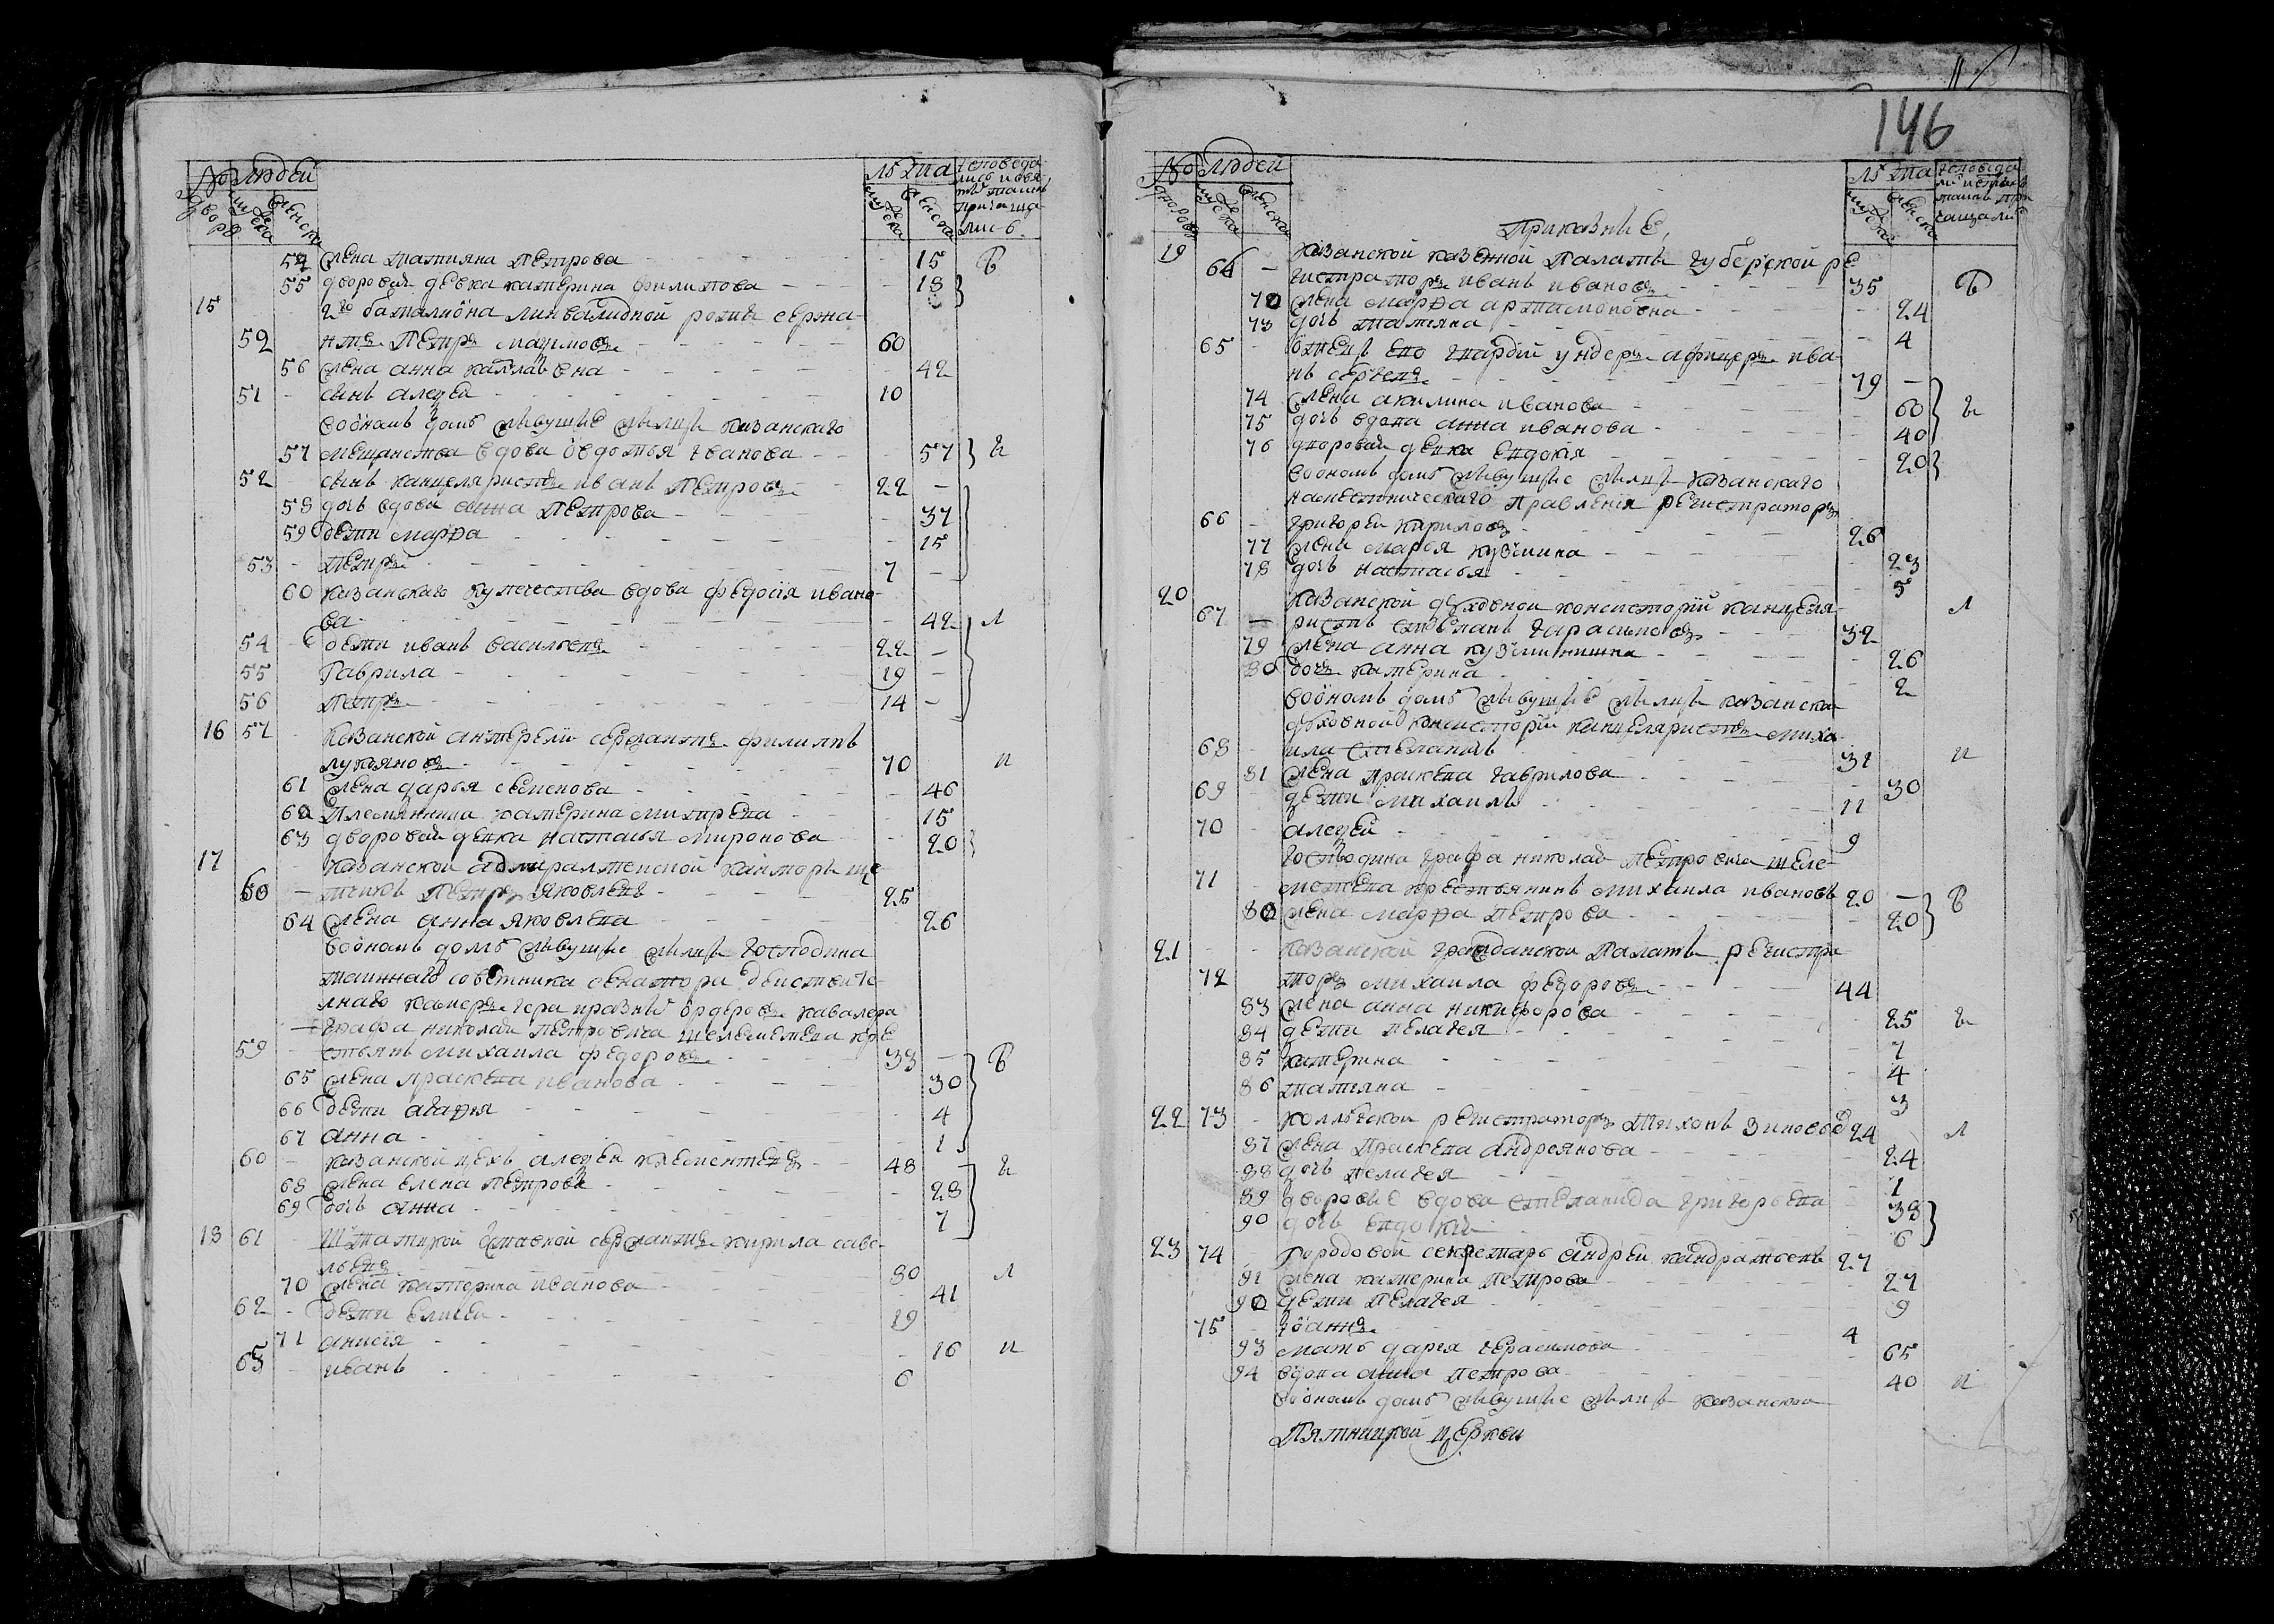 № дворовъ Людей мужеска женска лѣта мужеска женска исповеда
лись и свя
тыхъ таинъ
причаща
лись
54 жена татияна петрова 15 в
55 дворовая девка катерина филипова 18
15 2го баталиона минвалидной роты сержа
52 нтъ Петръ маѯимовъ 60
56 жена анна 42
51 сынъ алеѯей 10
воономъ домѣ живущие жильцы казанскаго
57 мещанства вдова овдотья иванова 57
52 сынъ канцеляристъ иванъ петровъ 22 —
58 дочь вдова анна петрова 37
59 дети марѳа 15
53 петръ 7 —
60 казанскаго купечества вдова федосия ивано
ва 42 л
54 дети иванъ васильевъ 22 —
55 гаврила 19 —
56 петръ 14 —
16 57 казанской сержантъ филипъ
лукяновъ 70 и
61 жена дарья семенова 46
62 племянница катерина митрева 15
63 дворовая девка настасья миронова 20
17 казанской адмиралтейской канторы
60 петръ яковлевъ 25
64 жена анна яковлева 26
воономъ домѣ живущие жильцы господина
таиннаго советника сенатора действите
лнаго камеръ гера правныи ордеровъ кавалера
графа николая петровича шелеметева кре
59 стьянъ михаила федоровъ 33 — в
65 жена прасковя иванова 30
66 дети агафя 4
67 анна 1
60 казанской цехъ алеѯей клементевъ 48
68 жена елена петрова 28
69 дочь анна 7
18 61 штатной сержантъ кирила саве
льевъ 80 л
70 жена катерина иванова 41
62 дети елисей 19
71 анисия 16 и
63 иванъ 6
146
№ дворовъ Людей мужеска женска лѣта мужеска женска исповеда
Приказные
19 казанской казенной палаты губерской ре
64 гистраторъ иванъ ивановъ 35 в
72 жена марѳа артамоновна 24
73 дочь татяна 4
65 отецъ ево гвардии ундеръ афицеръ ива
нъ сергеевъ 79 —
74 жена акилина иванова 60
75 дочь вдова анна иванова 40
76 дворовая девка евдокия 20
воономъ домѣ живущие жильцы казанскаго
наместническаго правления регистраторъ
66 григорей кириловъ 26
77 жена марья кузмина 23
78 дочь настасья 5
20 казанской духовной консистории канцеля
67 ристъ степанъ гарасимовъ 32 л
79 жена анна кузминишна 26
80 дочь катерина 2
воономъ домѣ живущие жильцы казанска
духовной консистории канцеляристъ миха
68 ила степановъ 31 и
81 жена прасковя гаврилова 30
69 дети михаилъ 11
70 алеѯей 9
господина графа николая петровича шеле
71 метева крестьянинъ михаила ивановъ 20 — в
82 жена марѳа петрова 20
21 казанской гражданской палаты регистра
72 торъ михаила федоровъ 44
83 жена анна никифорова 25
84 дети пелагея 7
85 катерина 4
86 татяна 3
22 73 колежской регистраторъ тихонъ зиновев 24 л
87 жена прасковя андреянова 24
88 дочь пелагея 1
89 дворовые вдова степанида григорьева 38
90 дочь 6
23 74 городовой секретарь андрей кандратьевъ 27
91 жена катерина петрова 27
92 дети пелагея 9
75 иоаннъ 4
93 мать дарья герасимова 65
94 вдова анна петрова 40 и
воономъ домѣ живущие жильцы казанской
Пятницкой церкви